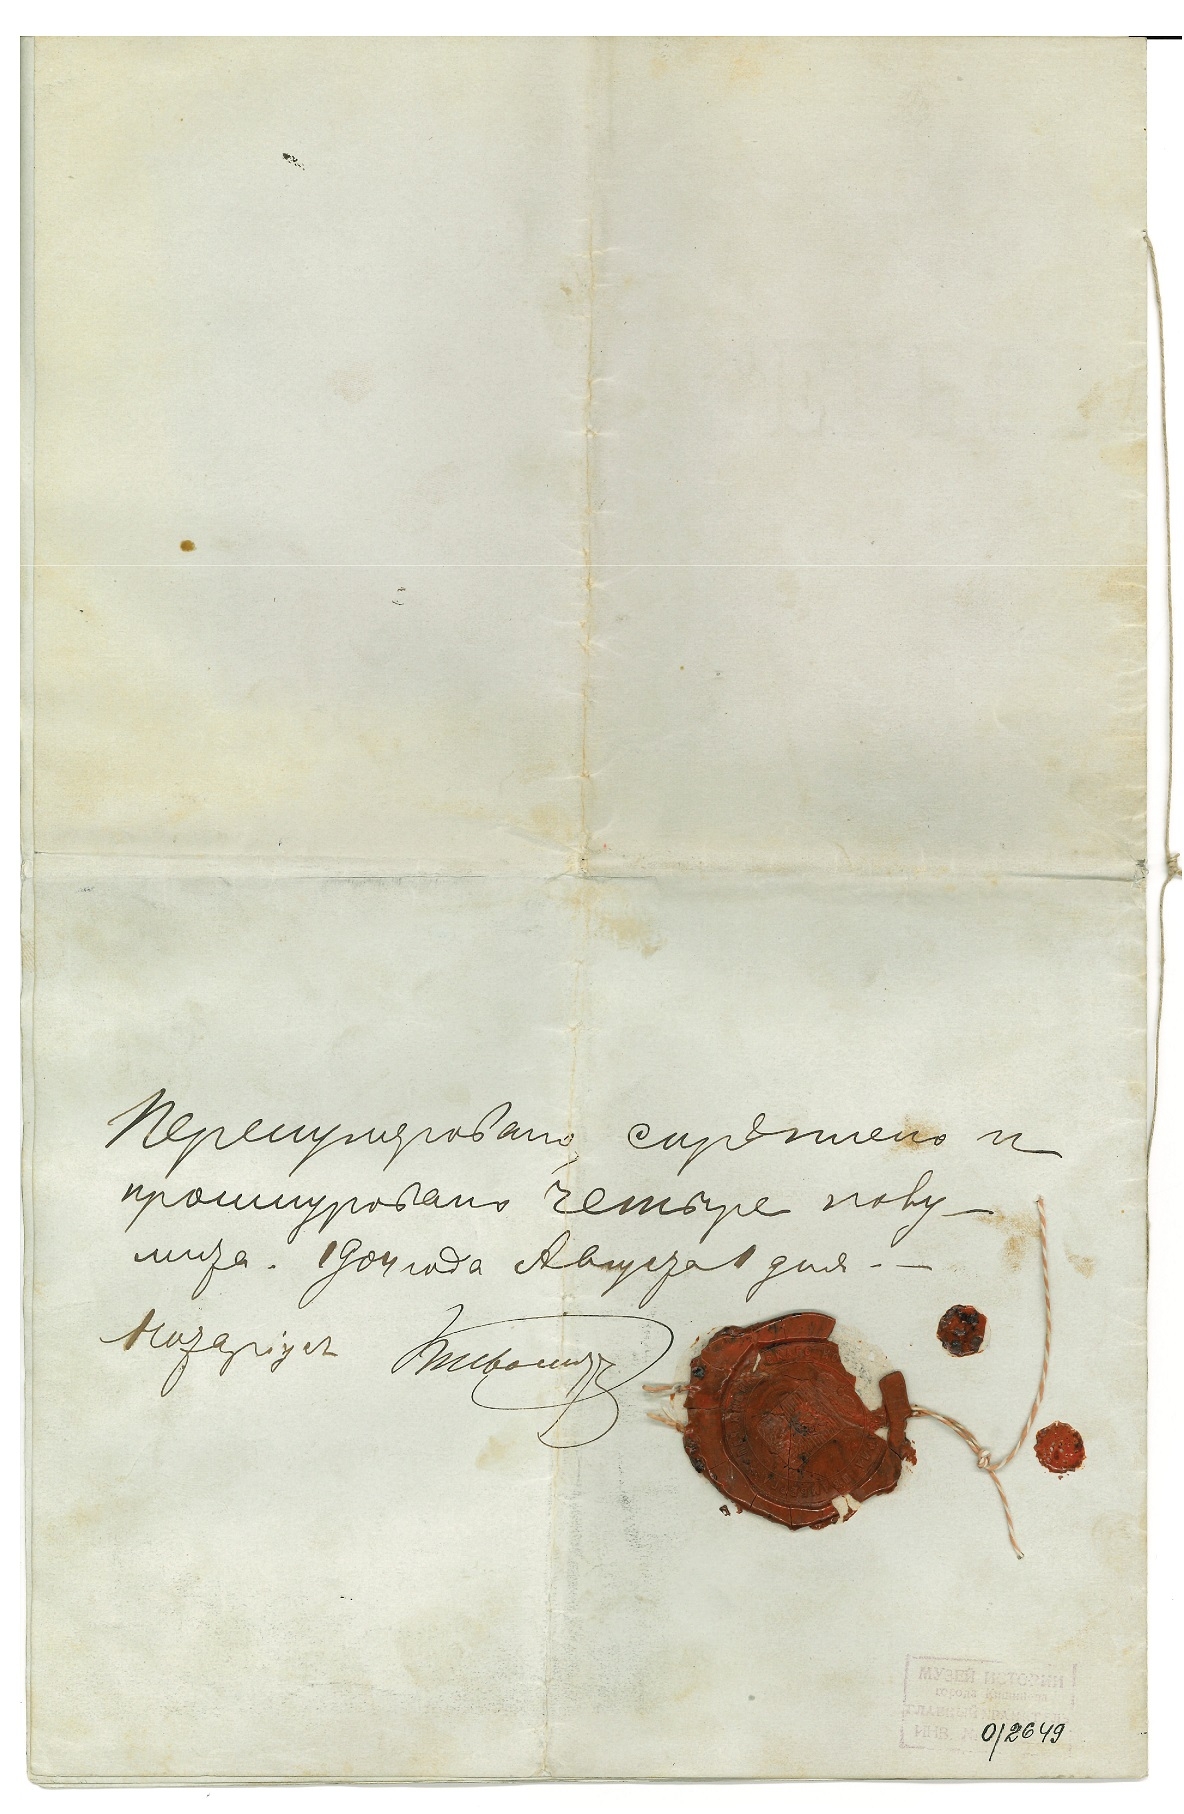 Перенумеровано, скрѣплено и
прошнуровано четыре полу-
листа. 1904 года Августа 1 дня. —
Нотаріусъ
МУЗЕЙ ИСТОРИИ
города Кишинева
ИНВ. №
0/2649